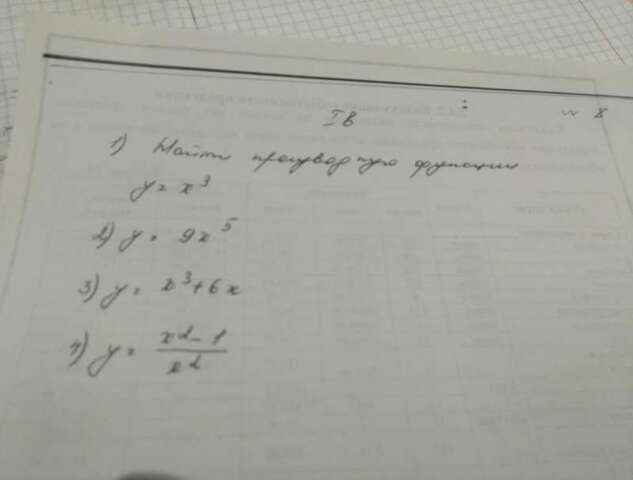 I в
1) Найти производную функции
y = x³
2) y = 9x⁵
3) y = x³ + 6x
4) y = (x² - 1) / x²